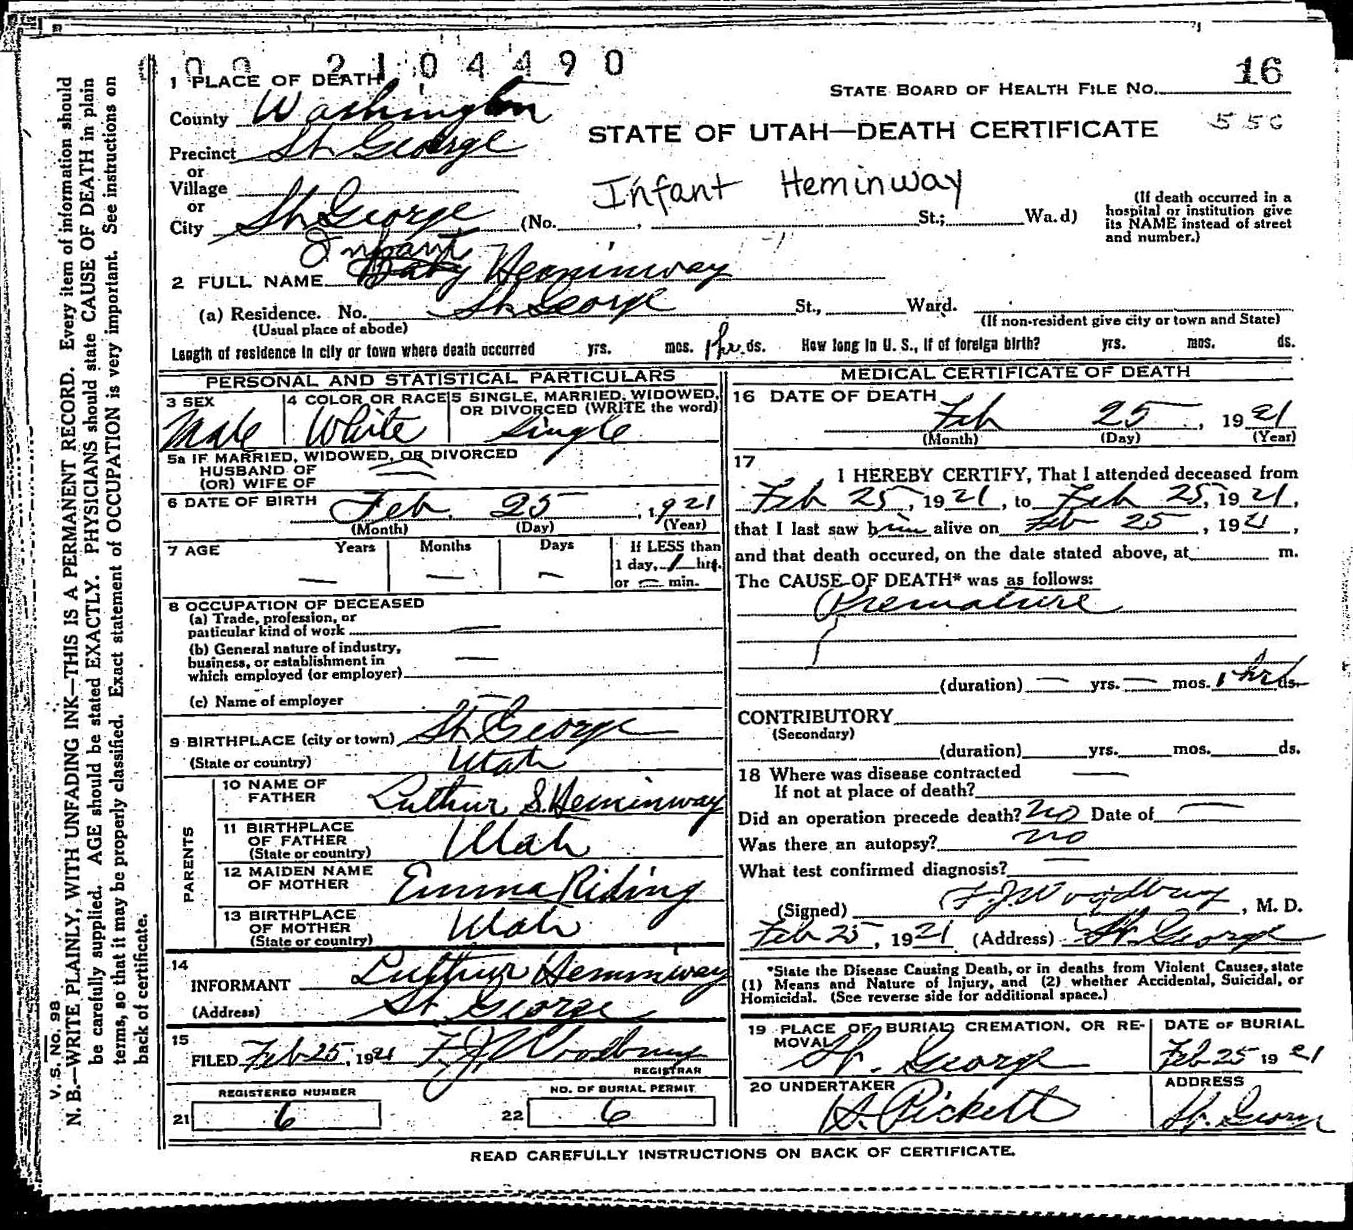 00 2104490
16
1 PLACE OF DEATH
STATE BOARD OF HEALTH FILE No.
County Washington
STATE OF UTAH—DEATH CERTIFICATE
550
Precinct St George
or
Village
Infant Heminway
or
City St George (No. St.; Wa.d)
(If death occurred in a hospital or institution give its NAME instead of street and number.)
Infant
2 FULL NAME Baby Heminway
(a) Residence. No. St George St., Ward.
(Usual place of abode)
(If non-resident give city or town and State)
Length of residence in city or town where death occurred yrs. mos. 1 hr. ds. How long in U. S., if of foreign birth? yrs. mos. ds.
PERSONAL AND STATISTICAL PARTICULARS
3 SEX Male
4 COLOR OR RACE White
5 SINGLE, MARRIED, WIDOWED, OR DIVORCED (WRITE the word) Single
5a IF MARRIED, WIDOWED, OR DIVORCED
HUSBAND OF
(OR) WIFE OF
6 DATE OF BIRTH Feb. 25, 1921
(Month) (Day) (Year)
7 AGE Years Months Days If LESS than
— — — 1 day, 1 hrs.
or — min.
8 OCCUPATION OF DECEASED
(a) Trade, profession, or
particular kind of work —
(b) General nature of industry,
business, or establishment in —
which employed (or employer)
(c) Name of employer —
9 BIRTHPLACE (city or town) St. George
(State or country) Utah
PARENTS
10 NAME OF FATHER Luthur S. Heminway
11 BIRTHPLACE OF FATHER (State or country) Utah
12 MAIDEN NAME OF MOTHER Emma Riding
13 BIRTHPLACE OF MOTHER (State or country) Utah
14 INFORMANT Luthur Heminway
(Address) St George
15 FILED Feb 25, 1921 F. J. Woodbury
REGISTRAR
REGISTERED NUMBER
21 6
NO. OF BURIAL PERMIT
22 6
MEDICAL CERTIFICATE OF DEATH
16 DATE OF DEATH
Feb 25, 1921
(Month) (Day) (Year)
17 I HEREBY CERTIFY, That I attended deceased from
Feb 25, 1921, to Feb 25, 1921,
that I last saw him alive on Feb 25, 1921,
and that death occured, on the date stated above, at m.
The CAUSE OF DEATH* was as follows:
Premature
(duration) — yrs. — mos. 1 hr ds.
CONTRIBUTORY
(Secondary)
(duration) yrs. mos. ds.
18 Where was disease contracted —
If not at place of death?
Did an operation precede death? no Date of —
Was there an autopsy? no
What test confirmed diagnosis? —
(Signed) F. J. Woodbury, M. D.
Feb 25, 1921 (Address) St. George
*State the Disease Causing Death, or in deaths from Violent Causes, state
(1) Means and Nature of Injury, and (2) whether Accidental, Suicidal, or
Homicidal. (See reverse side for additional space.)
19 PLACE OF BURIAL, CREMATION, OR RE-
MOVAL St. George
DATE OF BURIAL
Feb 25 1921
20 UNDERTAKER
Pickett
ADDRESS
St. George
READ CAREFULLY INSTRUCTIONS ON BACK OF CERTIFICATE.
V. S. No. 98
N. B.—WRITE PLAINLY, WITH UNFADING INK—THIS IS A PERMANENT RECORD. Every item of information should
be carefully supplied. AGE should be stated EXACTLY. PHYSICIANS should state CAUSE OF DEATH in plain
terms, so that it may be properly classified. Exact statement of OCCUPATION is very important. See instructions on
back of certificate.